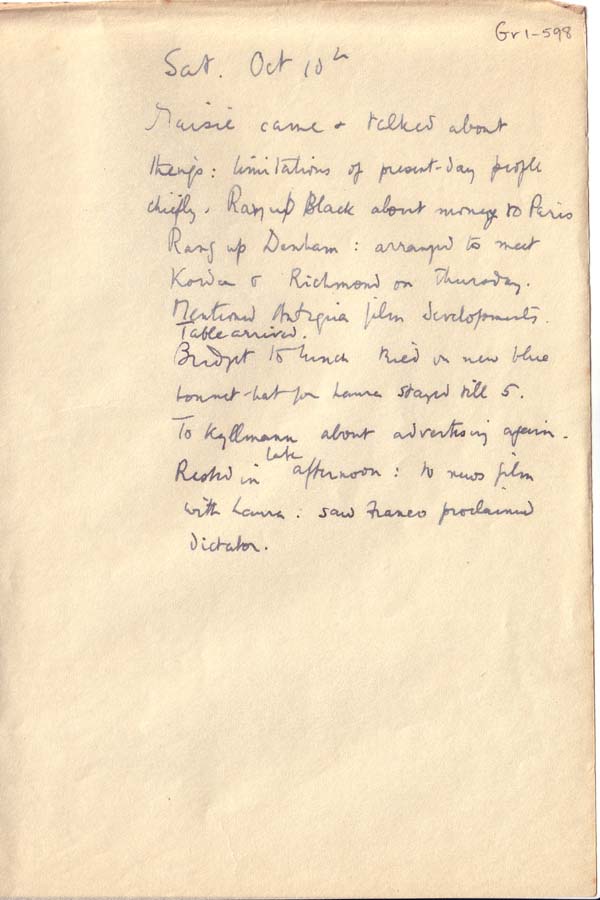 Gr1-598
Sat. Oct 10th
Maisie came & talked about
things: limitations of present-day people
chiefly. Rang up Black about money to Paris
Rang up Denham: arranged to meet
Korda & Richmond on Thursday.
Mentioned Antigua film developments.
Table arrived.
Bridget to lunch tried on new blue
bonnet-hat for Laura stayed till 5.
To Kyllmann about advertising again.
Rested in late afternoon: to news film
with Laura: saw Franco proclaimed
dictator.